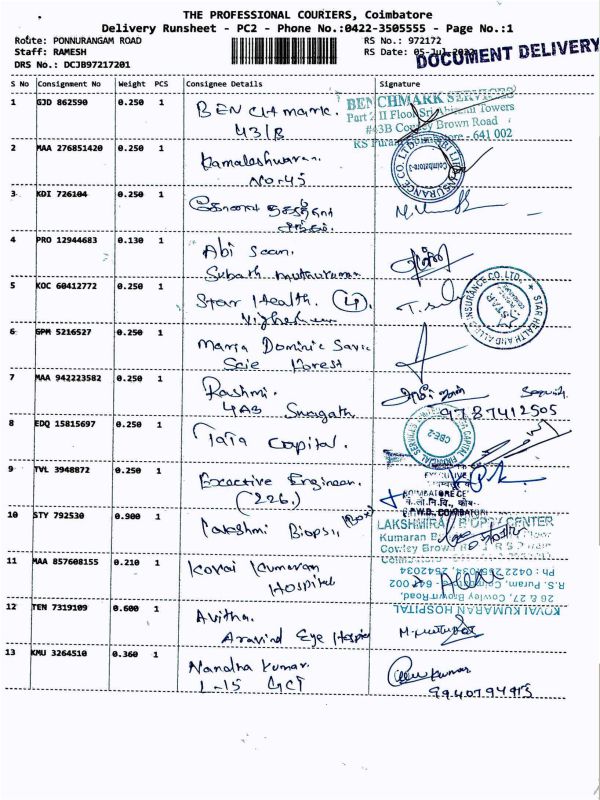 THE PROFESSIONAL COURIERS, Coimbatore
Delivery Runsheet - PC2 - Phone No.:0422-3505555 - Page No.:1
Route: PONNURANGAM ROAD
RS No.: 972172
Staff: RAMESH
RS Date: 05-Jul-2022
DOCUMENT DELIVERY
DRS No.: DCJB97217201
S No Consignment No Weight PCS Consignee Details Signature
1 GJD 862590 0.250 1 BENCH mark.
43/B
BENCHMARK SERVICES
Part 2 II Floor Sri Abirami Towers
#43B Cowley Brown Road
RS Puram - 641 002
2 MAA 276851420 0.250 1 Kamaleshwaran.
No.45
INSURANCE CO. LTD.
Coimbatore-3
3 KDI 726104 0.250 1 கோவை நகரத்தார்
சங்கம்.
4 PRO 12944683 0.130 1 Abi Scan.
Subash
5 KOC 60412772 0.250 1 Star Health. (4)
Vighesh
STAR HEALTH AND ALLIED INSURANCE CO. LTD.
STAR
6 GPM 5216527 0.250 1 Maria Dominic Savio
Scie Forest
7 MAA 942223582 0.250 1 Rashmi.
4AB
9787412505
8 EDQ 15815697 0.250 1 TaTa Capital.
TATA CAPITAL FINANCIAL SERVICES
CBE-2
9 TVL 3948872 0.250 1 Exective Engineer.
(226.)
10 STY 792530 0.900 1 Lakshmi Biopsy
LAKSHMIRAJ BIOPSY CENTER
Kumaran
Cowley Brown
11 MAA 857608155 0.210 1 Kovai Kumaran
Hospital
KOVAI KUMARAN HOSPITAL
26 & 27, Cowley Brown Road,
R.S. Puram, Coimbatore - 641 002
12 TEN 7319109 0.600 1 Avitha.
Aravind Eye Hospital
13 KMU 3264510 0.360 1 Nandha Kumar.
L-15 GCT